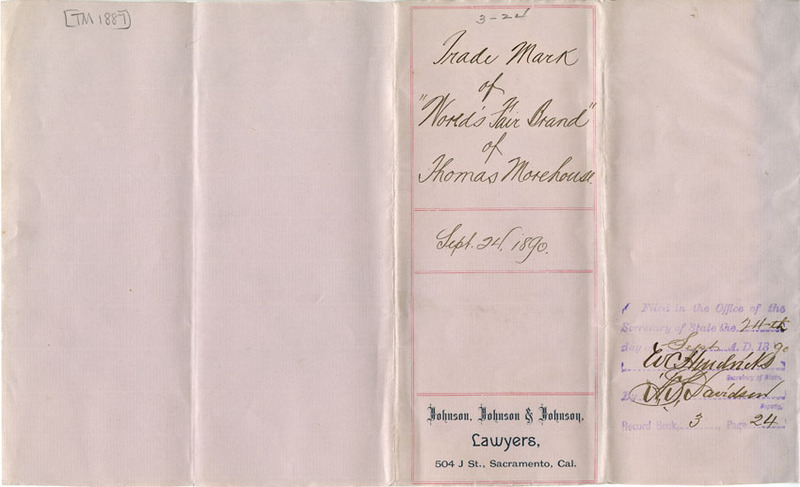 [TM 1887]
3-24
Trade Mark
of
"World's Fair Brand"
of
Thomas Morehouse.
Sept. 24, 1890.
Johnson, Johnson & Johnson,
Lawyers,
504 J St., Sacramento, Cal.
Filed in the Office of the
Secretary of State the 24th
day Sept A. D. 1890
E C Hendricks
Secretary of State
By Davidson
Deputy
Record Book, 3, Page 24